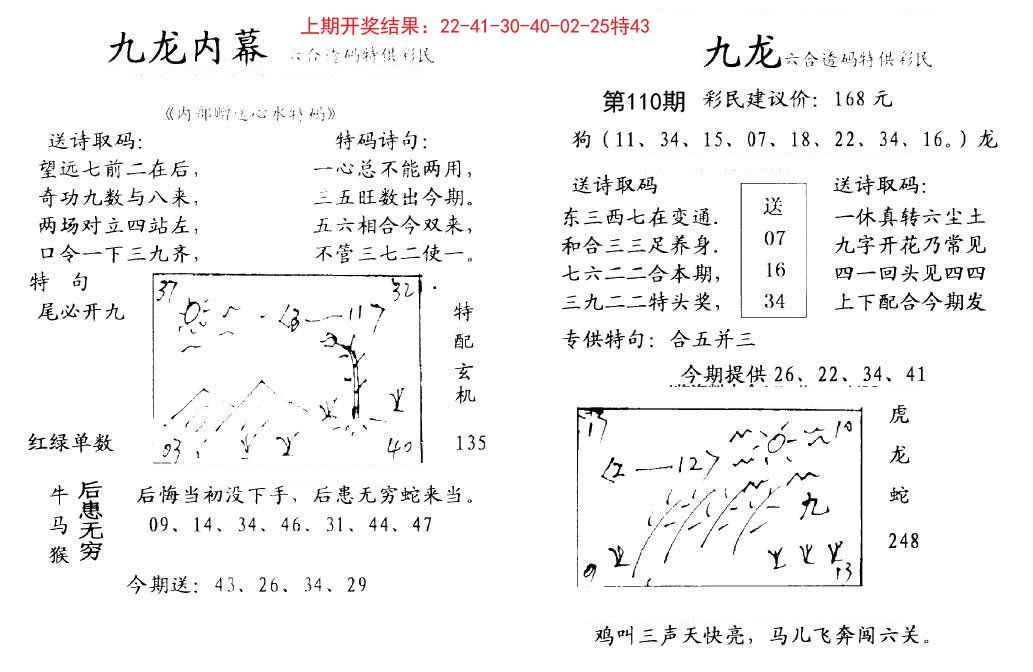 上期开奖结果：22-41-30-40-02-25特43
九龙内幕 六合透码特供彩民
《内部赠送心水特码》
送诗取码：
望远七前二在后，
奇功九数与八来，
两场对立四站左，
口令一下三九齐，
特码诗句：
一心总不能两用，
三五旺数出今期。
五六相合今双来，
不管三七二使一。
特 句
尾必开九
红绿单数
37
32
〈3—11〉
03
40
特
配
玄
机
135
牛
马
猴
后患无穷
后悔当初没下手，后患无穷蛇来当。
09、14、34、46、31、44、47
今期送：43、26、34、29
九龙六合透码特供彩民
第110期 彩民建议价：168元
狗（11、34、15、07、18、22、34、16。）龙
送诗取码
东三西七在变通．
和合三三足养身．
七六二二合本期，
三九二二特头奖，
送
07
16
34
送诗取码：
一休真转六尘土
九字开花乃常见
四一回头见四四
上下配合今期发
专供特句：合五并三
今期提供26、22、34、41
17
10
〈2—12〉
九
09
13
虎
龙
蛇
248
鸡叫三声天快亮，马儿飞奔闯六关。